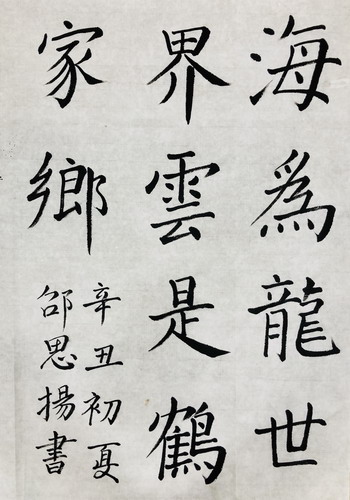 海為龍世
界雲是鶴
家鄉
辛丑初夏
邵思揚書